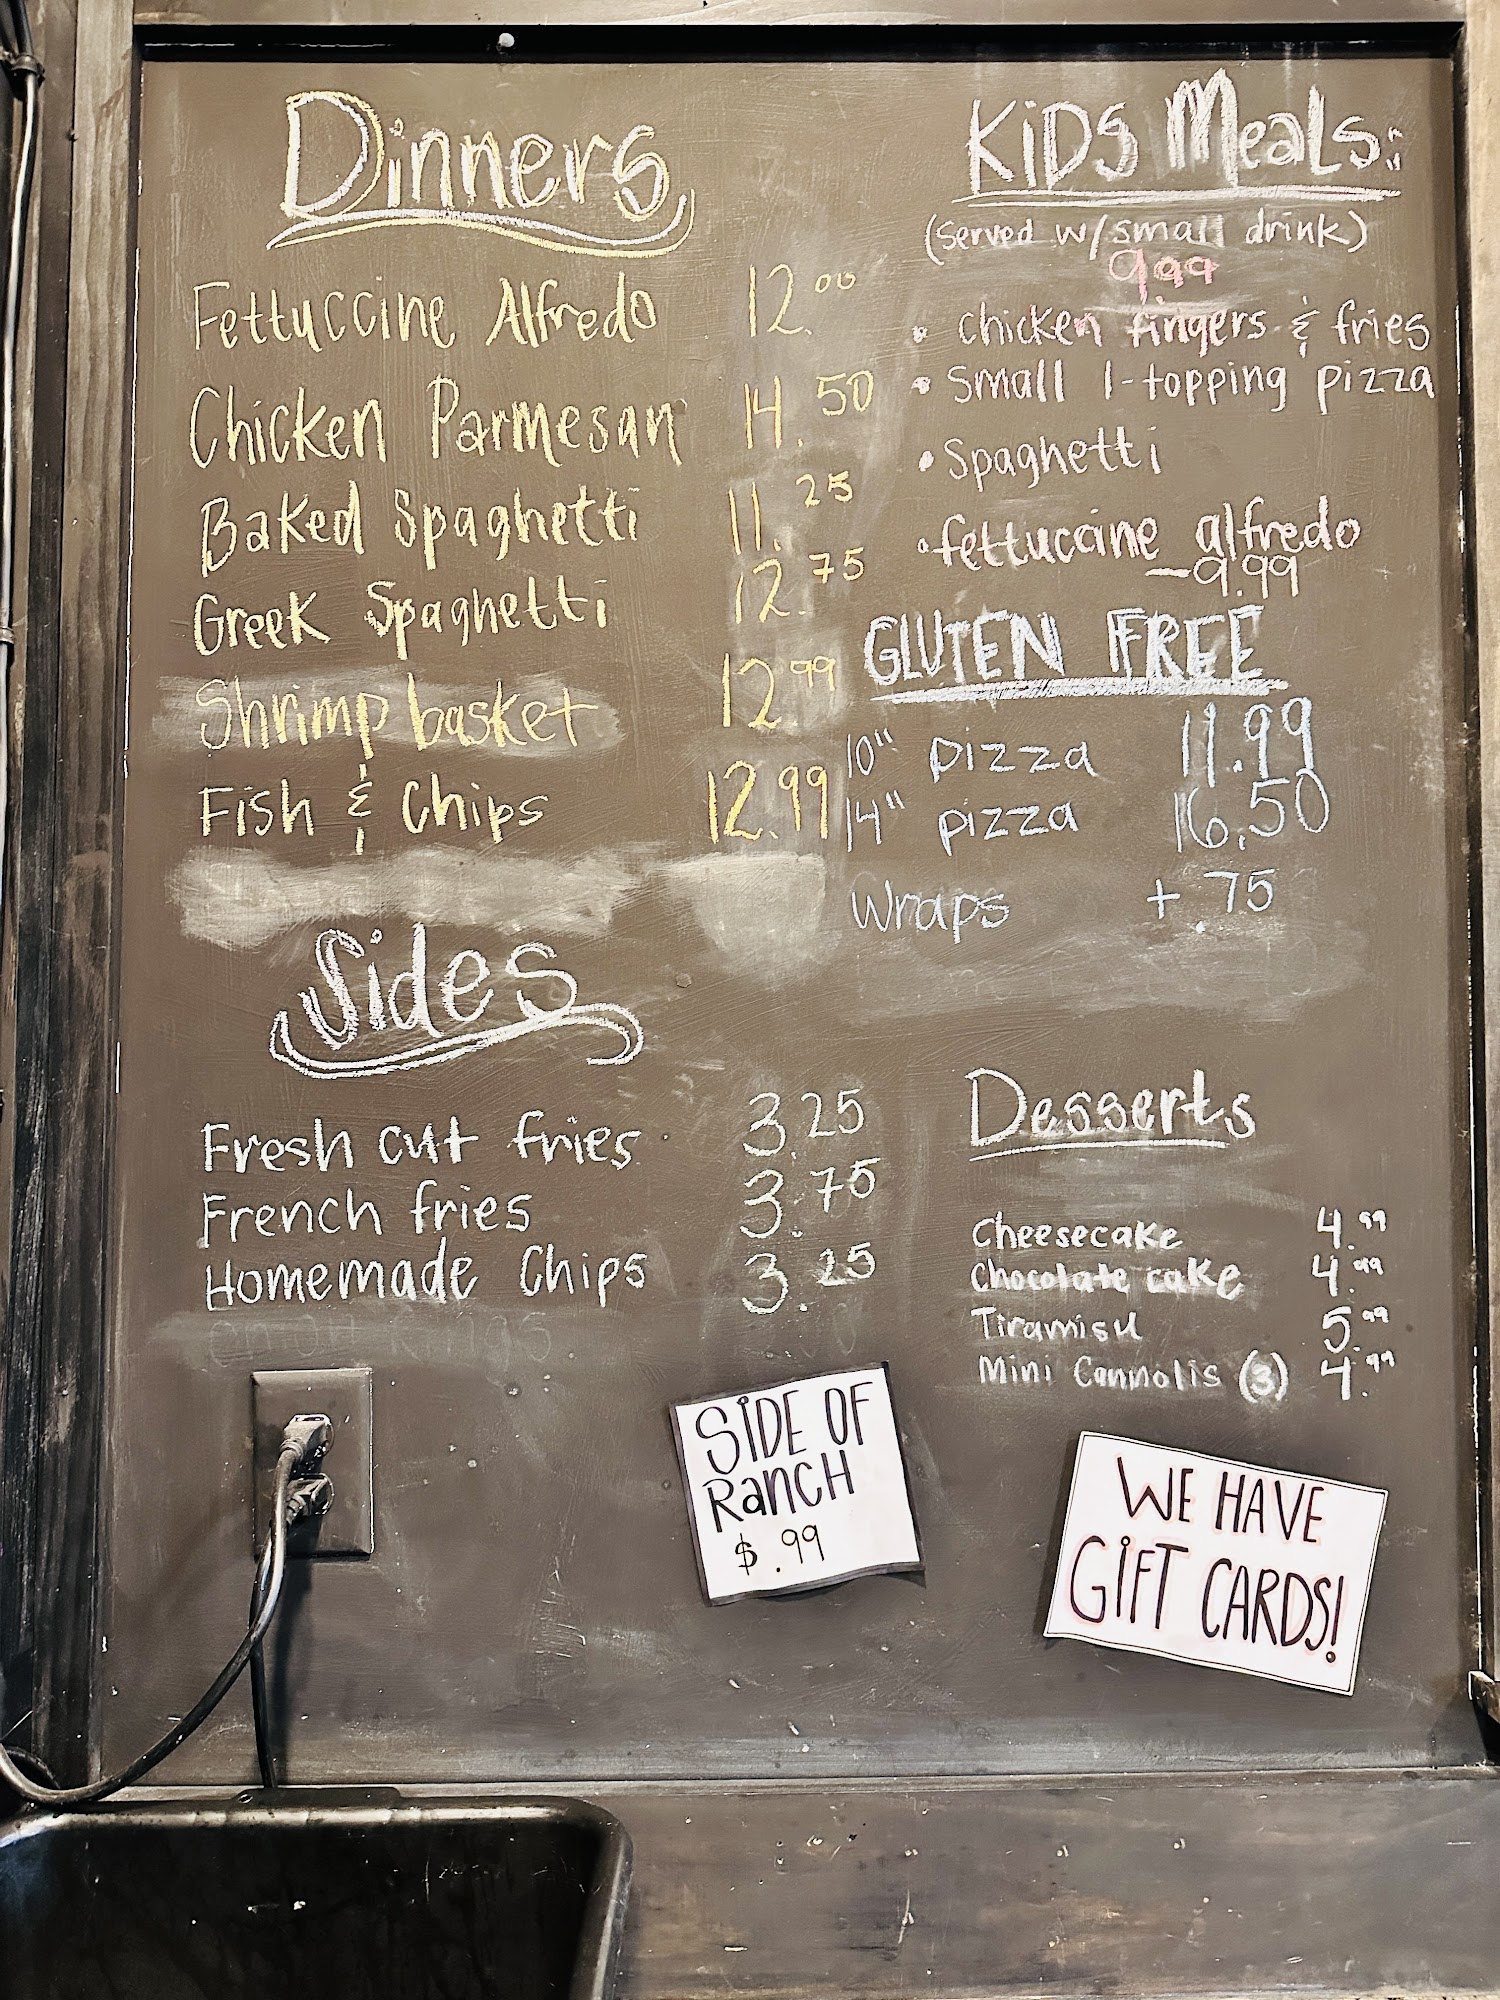 Dinners
Fettuccine Alfredo 12.00
Chicken Parmesan 14.50
Baked Spaghetti 11.25
Greek Spaghetti 12.75
Shrimp basket 12.99
Fish & Chips 12.99
Sides
Fresh cut fries 3.25
French fries 3.75
Homemade Chips 3.25
SIDE OF
RANCH
$.99
KIDS MEALS:
(served w/small drink)
9.99
• chicken fingers & fries
• Small 1-topping pizza
• Spaghetti
• fettuccine alfredo
-9.99
GLUTEN FREE
10" pizza 11.99
14" pizza 16.50
Wraps +.75
Desserts
Cheesecake 4.99
Chocolate cake 4.99
Tiramisu 5.99
Mini Cannolis (3) 4.99
WE HAVE
GIFT CARDS!